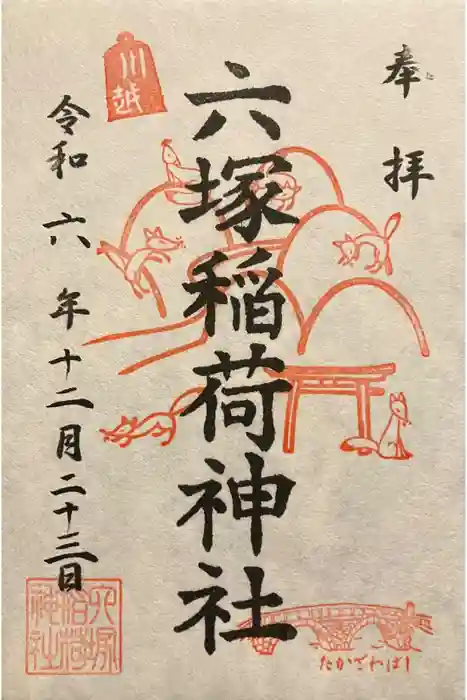 奉拝
六塚稲荷神社
川越
令和六年十二月二十三日
六塚稲荷神社
たかざわばし